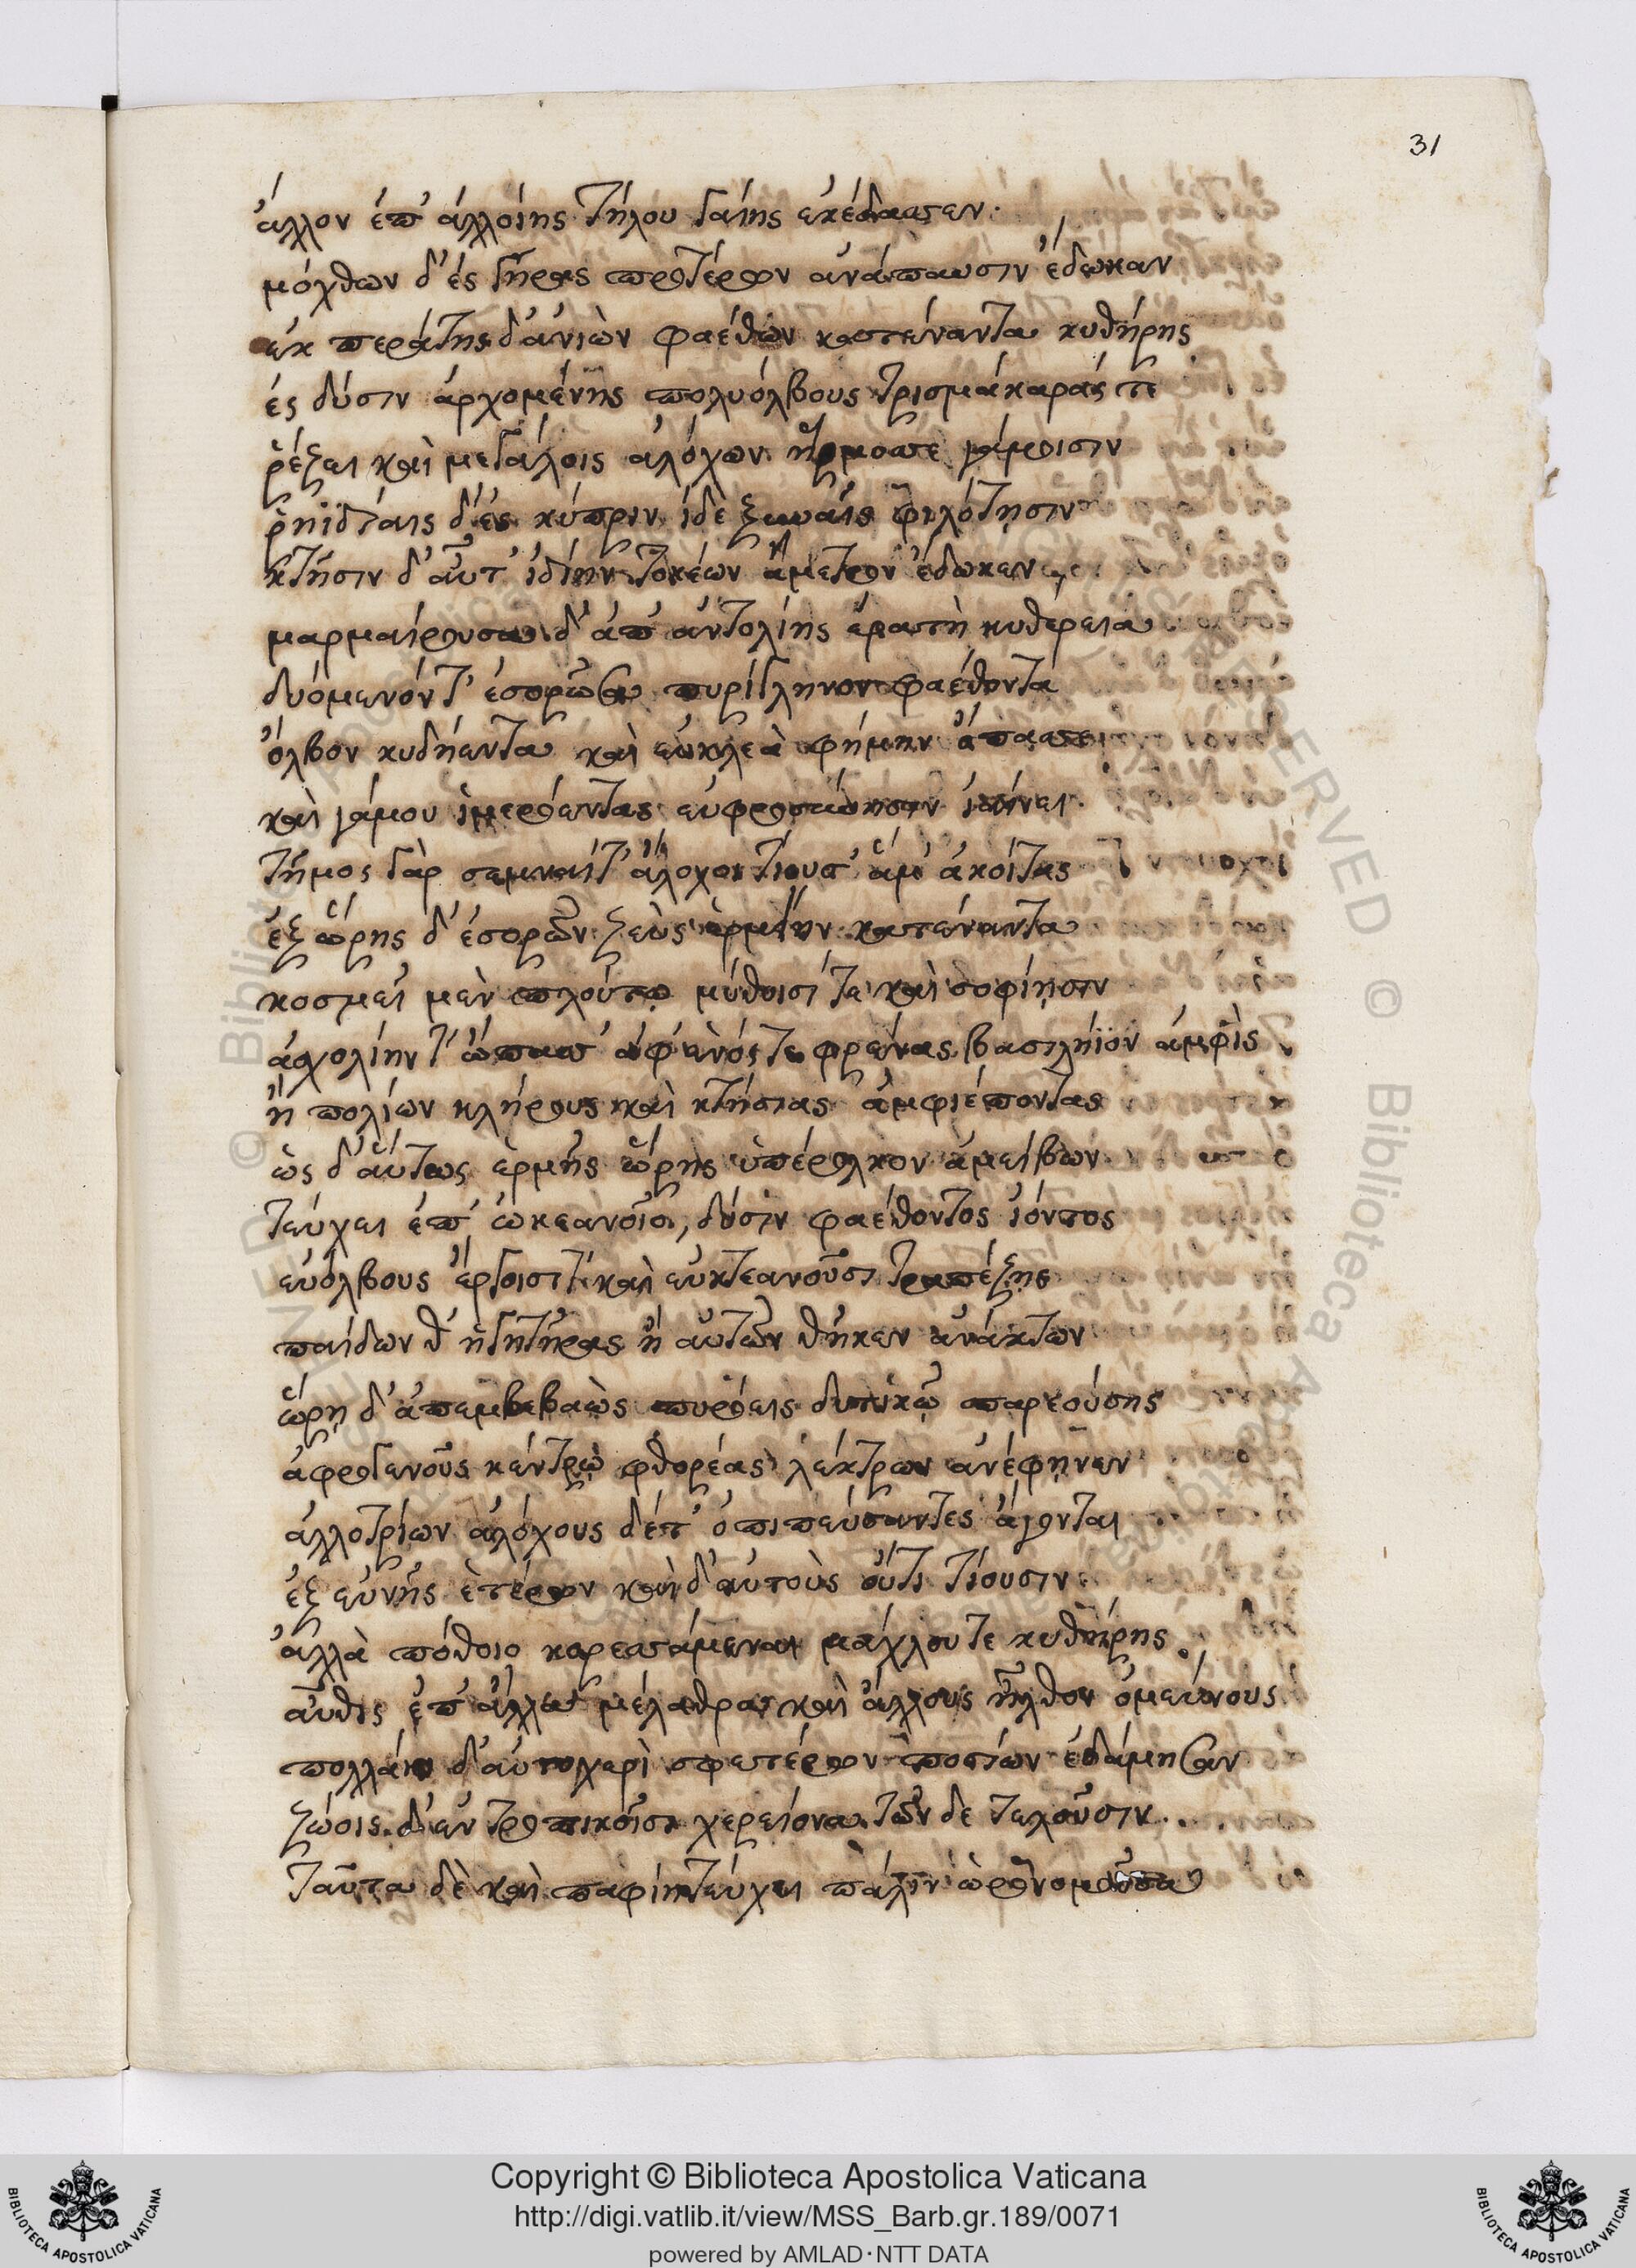 31
ἄλλον ἐπ' ἀλλοίης τήλου γαίης ἐκέδασσεν·
μόχθων δ' ἐς γῆρας προτέρων ἀνάπαυσιν ἔδωκαν
ἐκ περάτης δ' ἀνιὼν φαέθων κατεναντα κυθήρης
ἐς δύσιν ἀρχομένης πολυόλβους τρισμάκαράς τε
ῥέζει καὶ μεγάλοις ἀλόχων ἥρμοσε γάμοισιν
ῥηϊδίαις δ' ἐς κύπριν ἰδὲ ξυναῖς φιλότησιν
κτῆσιν δ' αὖτ' ἰδίην τοκέων ἄμετρον ἔδωκεν
μαρμαίρουσα δ' ἀπ' ἀντολίης ἐρατὴ κυθέρεια
δυόμενόν τ' ἐσορῶσα πυρίγληνον φαέθοντα
ὄλβον κυδήεντα καὶ εὐκλεὰ φήμην ὀπάσσει
καὶ γάμου ἱμερόεντας εὐφροσύνησιν ἰαίνει
τῆμος γὰρ σεμναί τ' ἄλοχοι τίουσ' ἅμ' ἀκοίτας
ἐξ ὥρης δ' ἐσορῶν ζεὺς ἑρμείην κατέναντα
κοσμεῖ μὲν πλούτῳ μύθοισί τε καὶ σοφίῃσιν
ἀσχολίην τ' ὤπασ' ἄφενός τε φρένας βασιλήϊον ἀμφὶς
ἢ πολίων κλήρους καὶ κτήσιας ἀμφιέποντας
ὡς δ' αὔτως ἑρμῆς ὥρης ὑπέρολκον ἀμείβων
τεύχει ἐπ' ὠκεανοῖο, δύσιν φαέθοντος ἰόντος
εὐόλβους ἔργοισί τε καὶ εὐκτεανοῦσι τραπέζης
παίδων θ' ἡγητῆρας ἢ αὐτῶν θῆκεν ἀνάκτων
ὥρη δ' ἀπεμβεβαὼς πυρόεις δυτικῷ παρεούσης
ἀφρογενοῦς κέντρῳ φθορέας λέκτρων ἀνέφηνεν
ἀλλοτρίων ἀλόχους δέ τ' ὀπιπεύσαντες ἄγονται
ἐξ εὐνῆς ἑτέρων καὶ δ' αὐτοὺς οὔτι τίουσιν
ἀλλὰ πόθοιο κορεσσάμεναι μάχλου τε κυθήρης
αὖθις ἐπ' ἄλλα μέλαθρα καὶ ἄλλους ἦλθον ὁμεύνους
πολλάκι δ' αὐτοχερὶ σφετέρων ποσίων ἐδάμησαν
ζώοις δ' ἐν τροπικοῖσι χερείονα τῶν δε τελοῦσιν
ταῦτα δὲ καὶ παφίη τεύχει πάλιν ὡρονομοῦσα
Copyright © Biblioteca Apostolica Vaticana
http://digi.vatlib.it/view/MSS_Barb.gr.189/0071
powered by AMLAD·NTT DATA
BIBLIOTECA APOSTOLICA VATICANA
BIBLIOTECA APOSTOLICA VATICANA